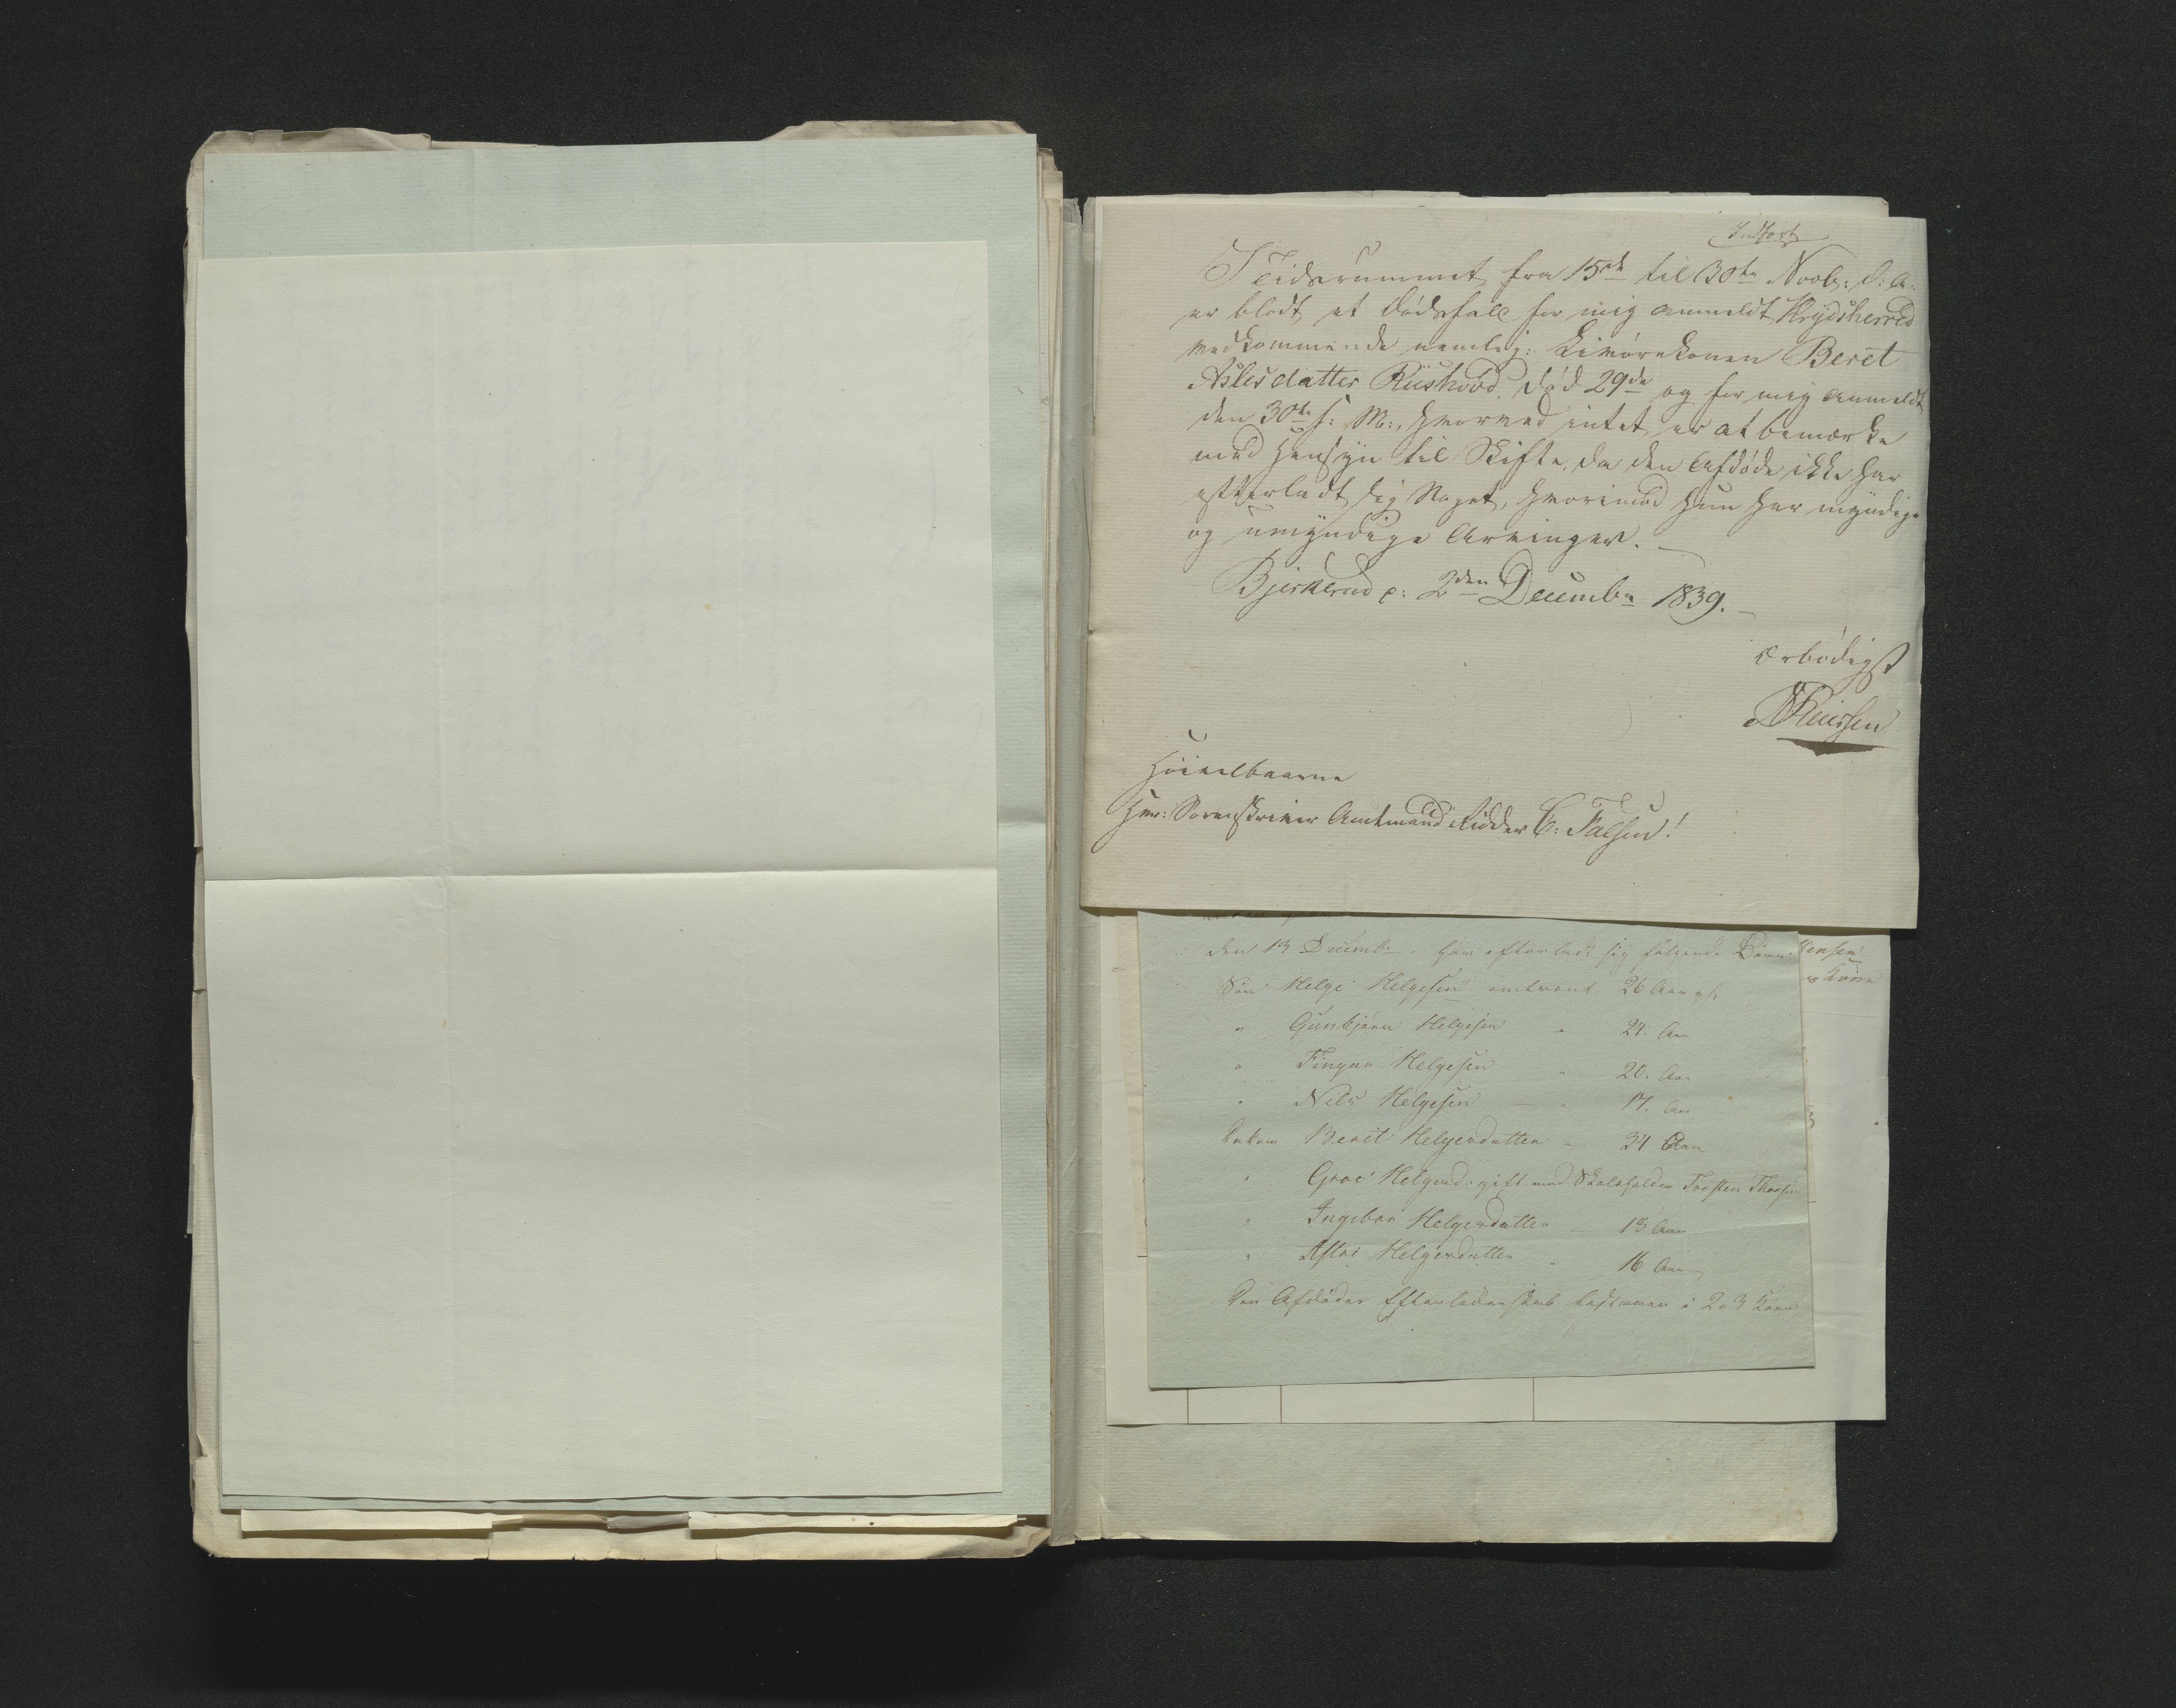 Indført
I Tidsrummet fra 15de til 30te Novbr: d: A:
er blodt et Dødsfall for mig anmeldt Krydsherred
vedkommende nemlig: Livørekonen Beret
Aslesdatter Riishovd, død 29de og for mig anmeldt
den 30te s: M:, hvorved intet er at bemærke
med Hensyn til Skifte, da den Afdøde ikke har
efterladt sig Noget, hvorimod hun har myndige
og umyndige Arvinger.
Bjerkerud p: 2den Decembr 1839.
Ærbødigst
Høivelbaarne
Hr: Sorenskriver Amtmand Ridder C: Falsen!
den 13 Decembr, har efterladt sig følgende Børn:
Søn Helge Helgesen omtrent 26 Aar gl.
" Gunbjørn Helgesen " 24. Aar
" Fingar Helgesen " 20. Aar
" Nils Helgesen " 17. Aar
Datter Berit Helgesdatter " 34 Aar
" Groe Helgesd. gift med Skoleholder Torsten Thorsen
" Ingebor Helgesdatter 13 Aar
" Astri Helgesdatter " 16 Aar
Den Afdødes Efterladenskab bestaaer i 2 a 3 Køer